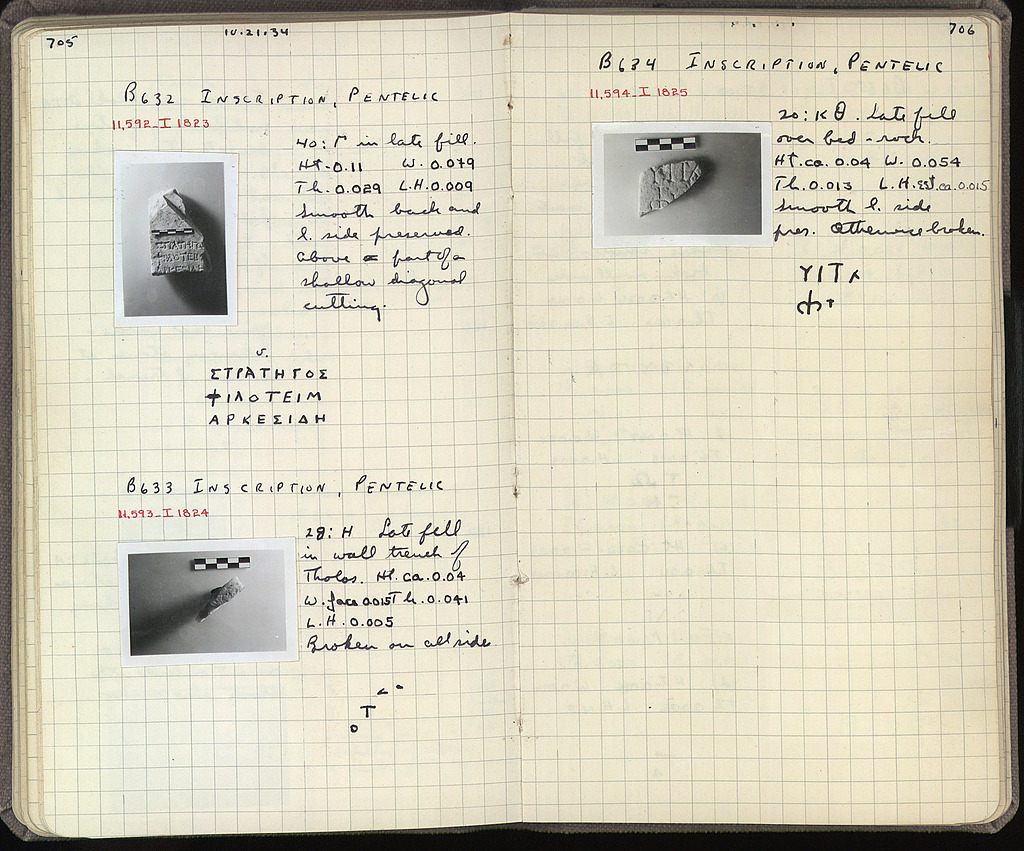 705
10.21.34
B632 INSCRIPTION, PENTELIC
11,592-I 1823
40: Γ in late fill.
Ht. 0.11 W. 0.079
Th. 0.029 L.H. 0.009
Smooth back and
l. side preserved.
Above part of a
shallow diagonal
cutting.
v.
ΣΤΡΑΤΗΓΟΣ
ΦΙΛΟΤΕΙΜ
ΑΡΚΕΣΙΔΗ
B633 INSCRIPTION, PENTELIC
11,593-I 1824
28: H Late fill
in wall trench of
Tholos. Ht. ca. 0.04
W. face 0.015 Th. 0.041
L.H. 0.005
Broken on all side
Τ
ο
706
B634 INSCRIPTION, PENTELIC
11,594-I 1825
20: ΚΘ. Late fill
over bed-rock.
Ht. ca. 0.04 W. 0.054
Th. 0.013 L.H. est. ca. 0.015
Smooth l. side
pres. Otherwise broken.
ΥΙΤ